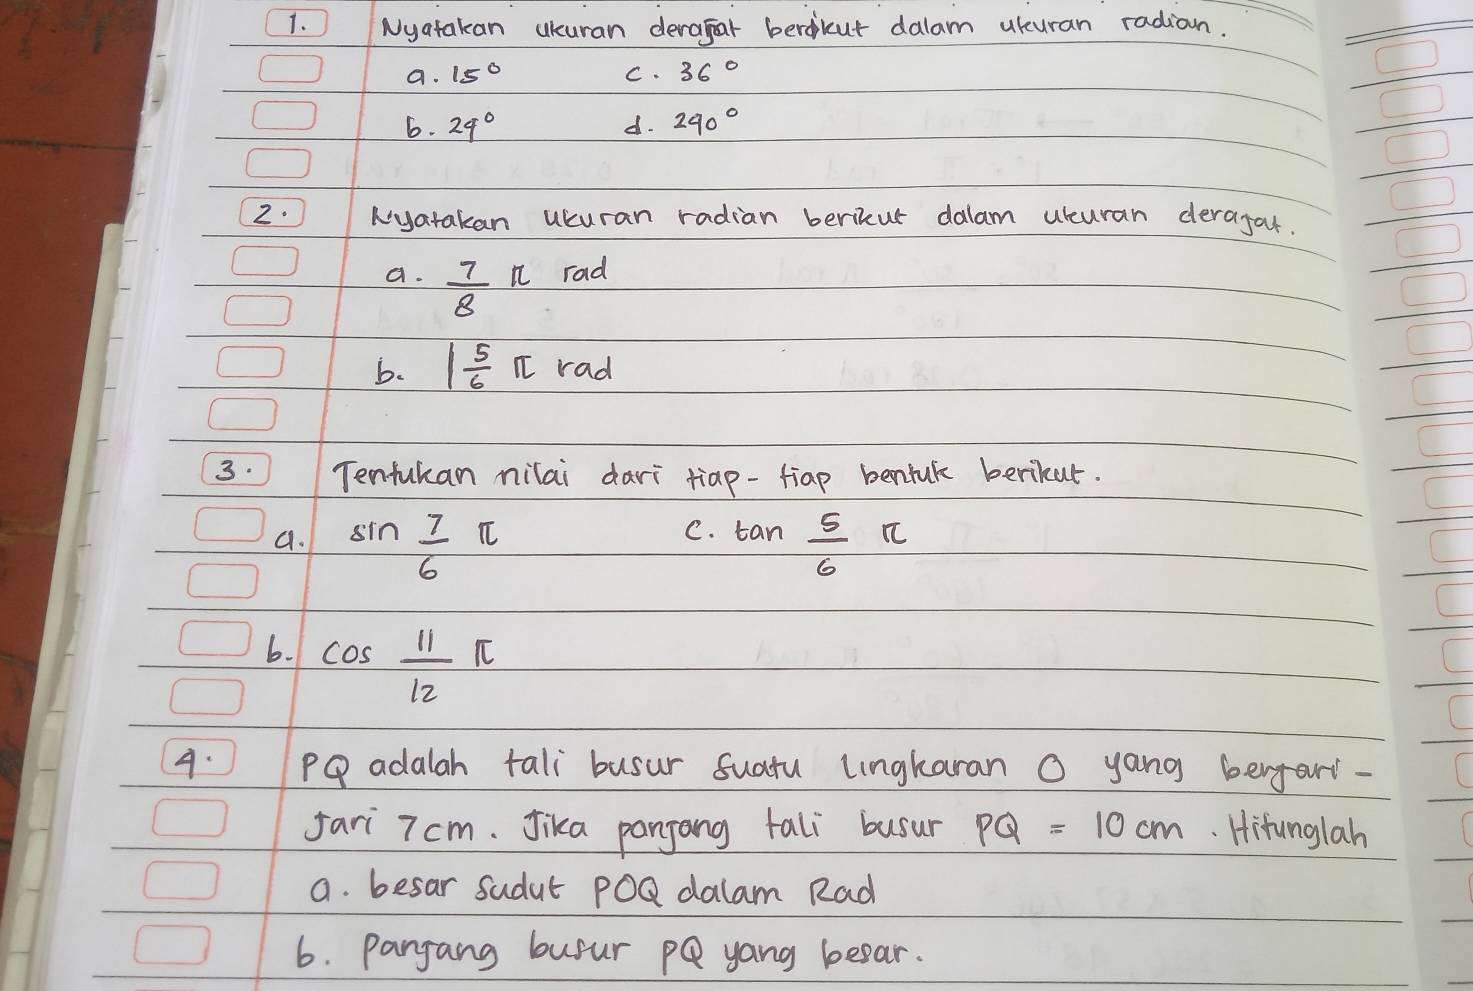 1. Nyatakan ukuran derajat berikut dalam ukuran radian.
a. 15° c. 36°
b. 29° d. 290°
2. Nyatakan ukuran radian berikut dalam ukuran derajat.
a. 7/8 π rad
b. 1 5/6 π rad
3. Tentukan nilai dari tiap-tiap bentuk berikut.
a. sin 7/6 π c. tan 5/6 π
b. cos 11/12 π
4. PQ adalah tali busur suatu lingkaran O yang berjari-
jari 7 cm. Jika panjang tali busur PQ = 10 cm. Hitunglah
a. besar sudut POQ dalam Rad
b. panjang busur PQ yang besar.